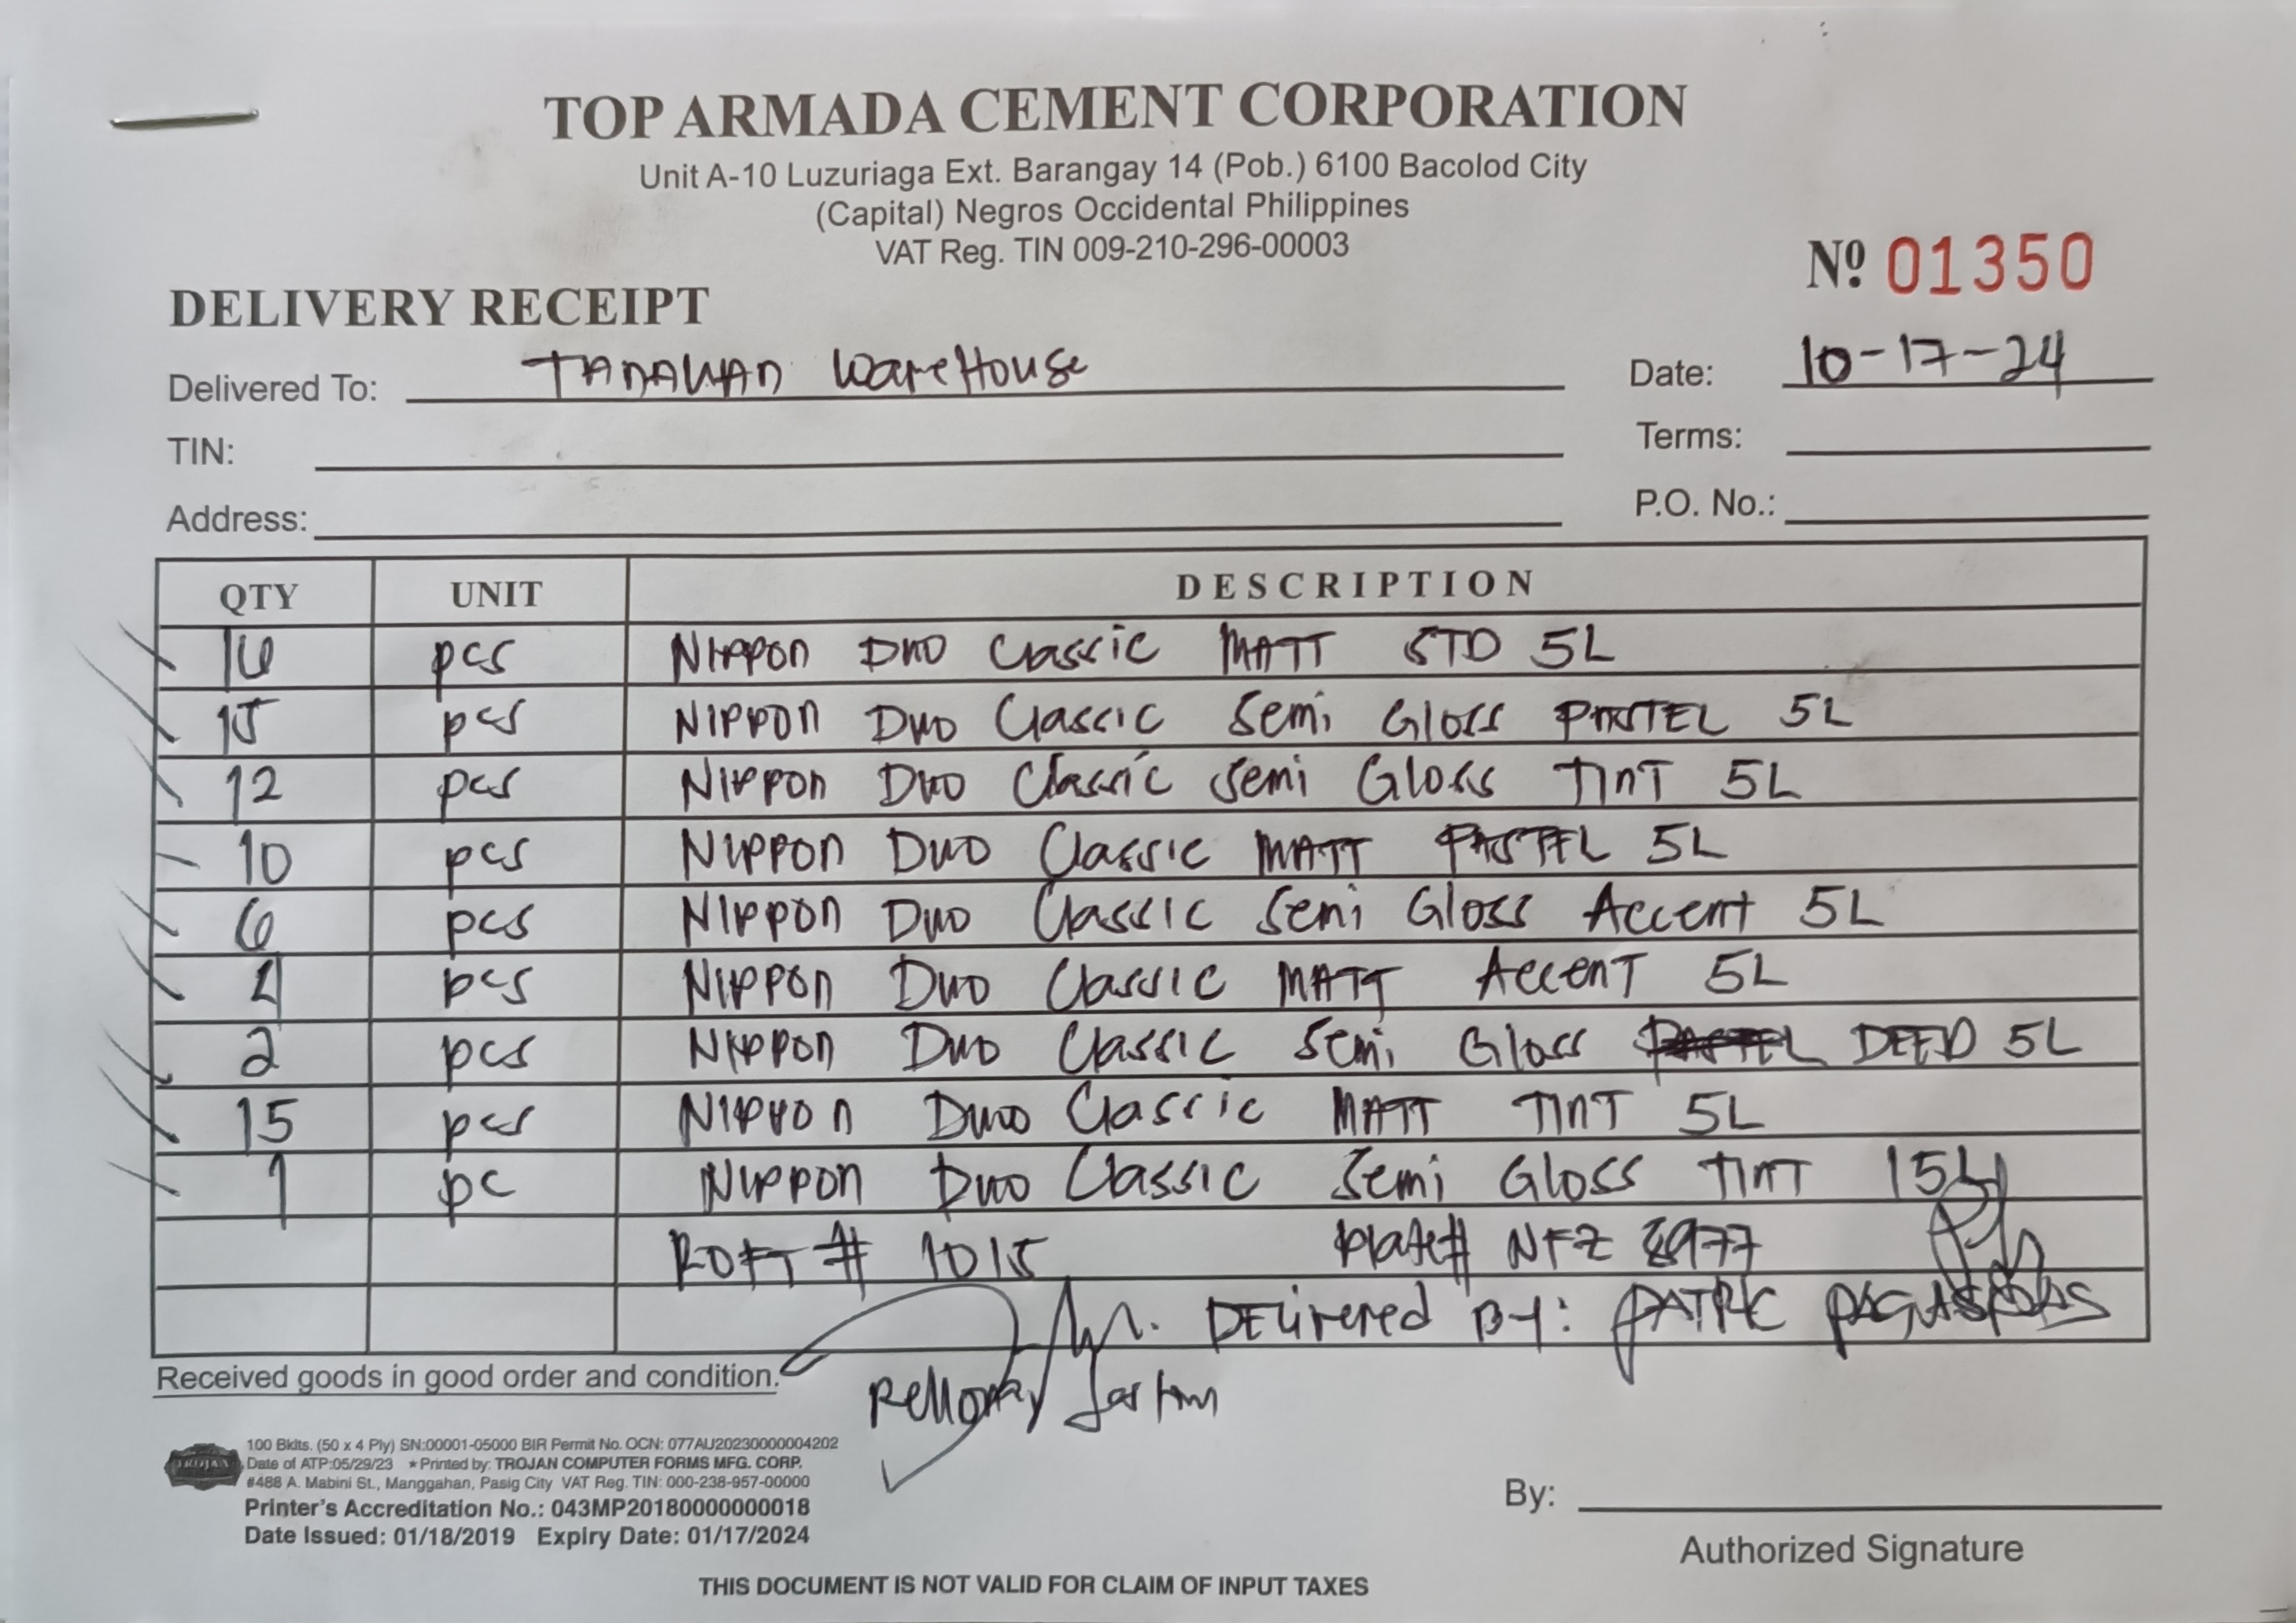 TOP ARMADA CEMENT CORPORATION
Unit A-10 Luzuriaga Ext. Barangay 14 (Pob.) 6100 Bacolod City
(Capital) Negros Occidental Philippines
VAT Reg. TIN 009-210-296-00003
Nº 01350
DELIVERY RECEIPT
Delivered To: TANAUAN WareHouse Date: 10-17-24
TIN: Terms:
Address: P.O. No.:
QTY UNIT DESCRIPTION
16 pcs NIPPON DUO Classic MATT STD 5L
15 pcs NIPPON DUO Classic Semi Gloss PASTEL 5L
12 pcs NIPPON DUO Classic Semi Gloss TINT 5L
10 pcs NIPPON DUO Classic MATT PASTEL 5L
6 pcs NIPPON DUO Classic Semi Gloss Accent 5L
4 pcs NIPPON DUO Classic MATT Accent 5L
2 pcs NIPPON DUO Classic Semi Gloss DEEP 5L
15 pcs NIPPON DUO Classic MATT TINT 5L
1 pc NIPPON DUO Classic Semi Gloss TINT 15L
ROFT # 1015 Plate# NFZ 8977
DELivered BY: PATRIC
Received goods in good order and condition.
TROJAN
100 Bklts. (50 x 4 Ply) SN:00001-05000 BIR Permit No. OCN: 077AU20230000004202
Date of ATP:05/29/23 ★Printed by: TROJAN COMPUTER FORMS MFG. CORP.
#488 A. Mabini St., Manggahan, Pasig City VAT Reg. TIN: 000-238-957-00000
Printer's Accreditation No.: 043MP20180000000018
Date Issued: 01/18/2019 Expiry Date: 01/17/2024
By:
Authorized Signature
THIS DOCUMENT IS NOT VALID FOR CLAIM OF INPUT TAXES